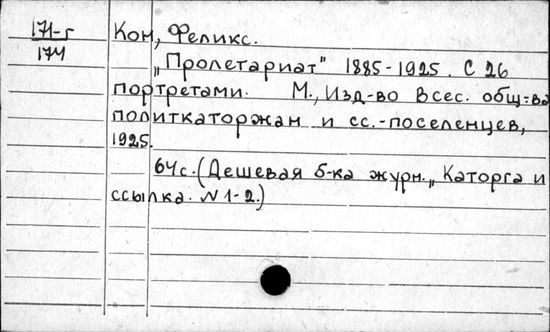 171-г
174
Кон, Феликс.
„Пролетариат" 1885-1925. С 26
портретами. М., Изд-во Всес. общ-ва
политкаторжан и сс.-поселенцев,
1925.
64с. (Дешевая б-ка журн. „Каторга и
ссылка. N 1-2.)